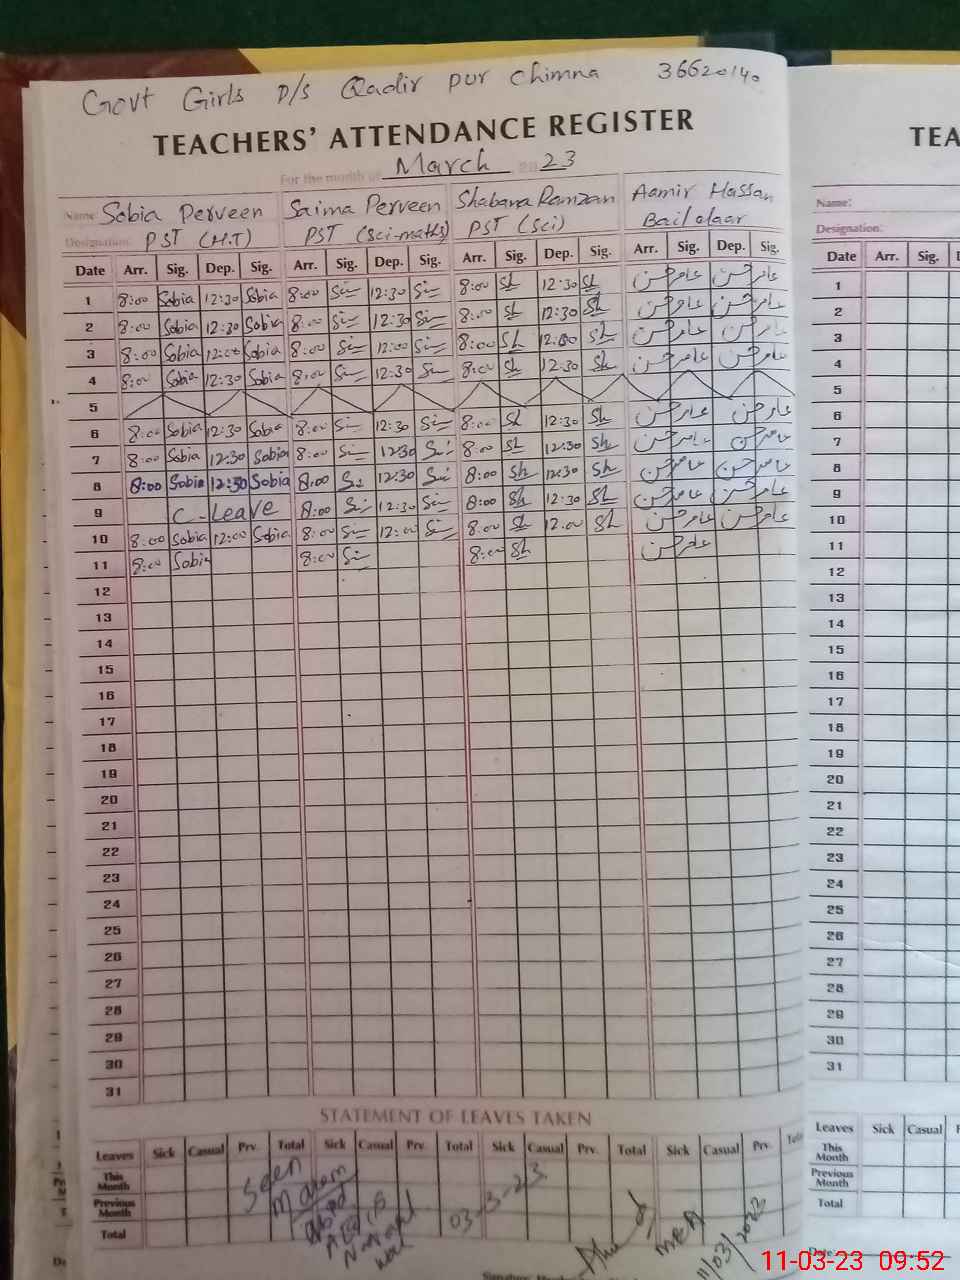 Govt Girls P/S Qadir pur Chimna 36620140
TEACHERS' ATTENDANCE REGISTER
TEA
For the month of March 2023
Name: Sobia Perveen Saima Perveen Shabana Ramzan Aamir Hassan
Name:
Designation: PST (H.T) PST (Sci-maths) PST (Sci) Bailolaar
Designation:
Date Arr. Sig. Dep. Sig. Arr. Sig. Dep. Sig. Arr. Sig. Dep. Sig. Arr. Sig. Dep. Sig.
Date Arr. Sig.
1 8:00 Sobia 12:30 Sobia 8:00 12:30 8:00 Sh 12:30 Sh عامر حسن عامر حسن
2 8:00 Sobia 12:30 Sobia 8:00 12:30 8:00 Sh 12:30 Sh عامر حسن عامر حسن
3 8:00 Sobia 12:00 Sobia 8:00 12:00 8:00 Sh 12:00 Sh عامر حسن عامر حسن
4 8:00 Sobia 12:30 Sobia 8:00 12:30 8:00 Sh 12:30 Sh عامر حسن عامر حسن
5
6 8:00 Sobia 12:30 Sobia 8:00 12:30 8:00 Sh 12:30 Sh عامر حسن عامر حسن
7 8:00 Sobia 12:30 Sobia 8:00 12:30 8:00 Sh 12:30 Sh عامر حسن عامر حسن
8 8:00 Sobia 12:30 Sobia 8:00 12:30 8:00 Sh 12:30 Sh عامر حسن عامر حسن
9 C-Leave 8:00 12:30 8:00 Sh 12:30 Sh عامر حسن عامر حسن
10 8:00 Sobia 12:00 Sobia 8:00 12:00 8:00 Sh 12:00 Sh عامر حسن عامر حسن
11 8:00 Sobia 8:00 8:00 Sh عامر حسن
12
13
14
15
16
17
18
19
20
21
22
23
24
25
26
27
28
29
30
31
1
2
3
4
5
6
7
8
9
10
11
12
13
14
15
16
17
18
19
20
21
22
23
24
25
26
27
28
29
30
31
STATEMENT OF LEAVES TAKEN
Leaves Sick Casual Prv. Total Sick Casual Prv. Total Sick Casual Prv. Total Sick Casual Prv. Total
This Month
Previous Month
Total
Seen
03-3-23
MEA
11/03/2023
Leaves Sick Casual
This Month
Previous Month
Total
Date
11-03-23 09:52